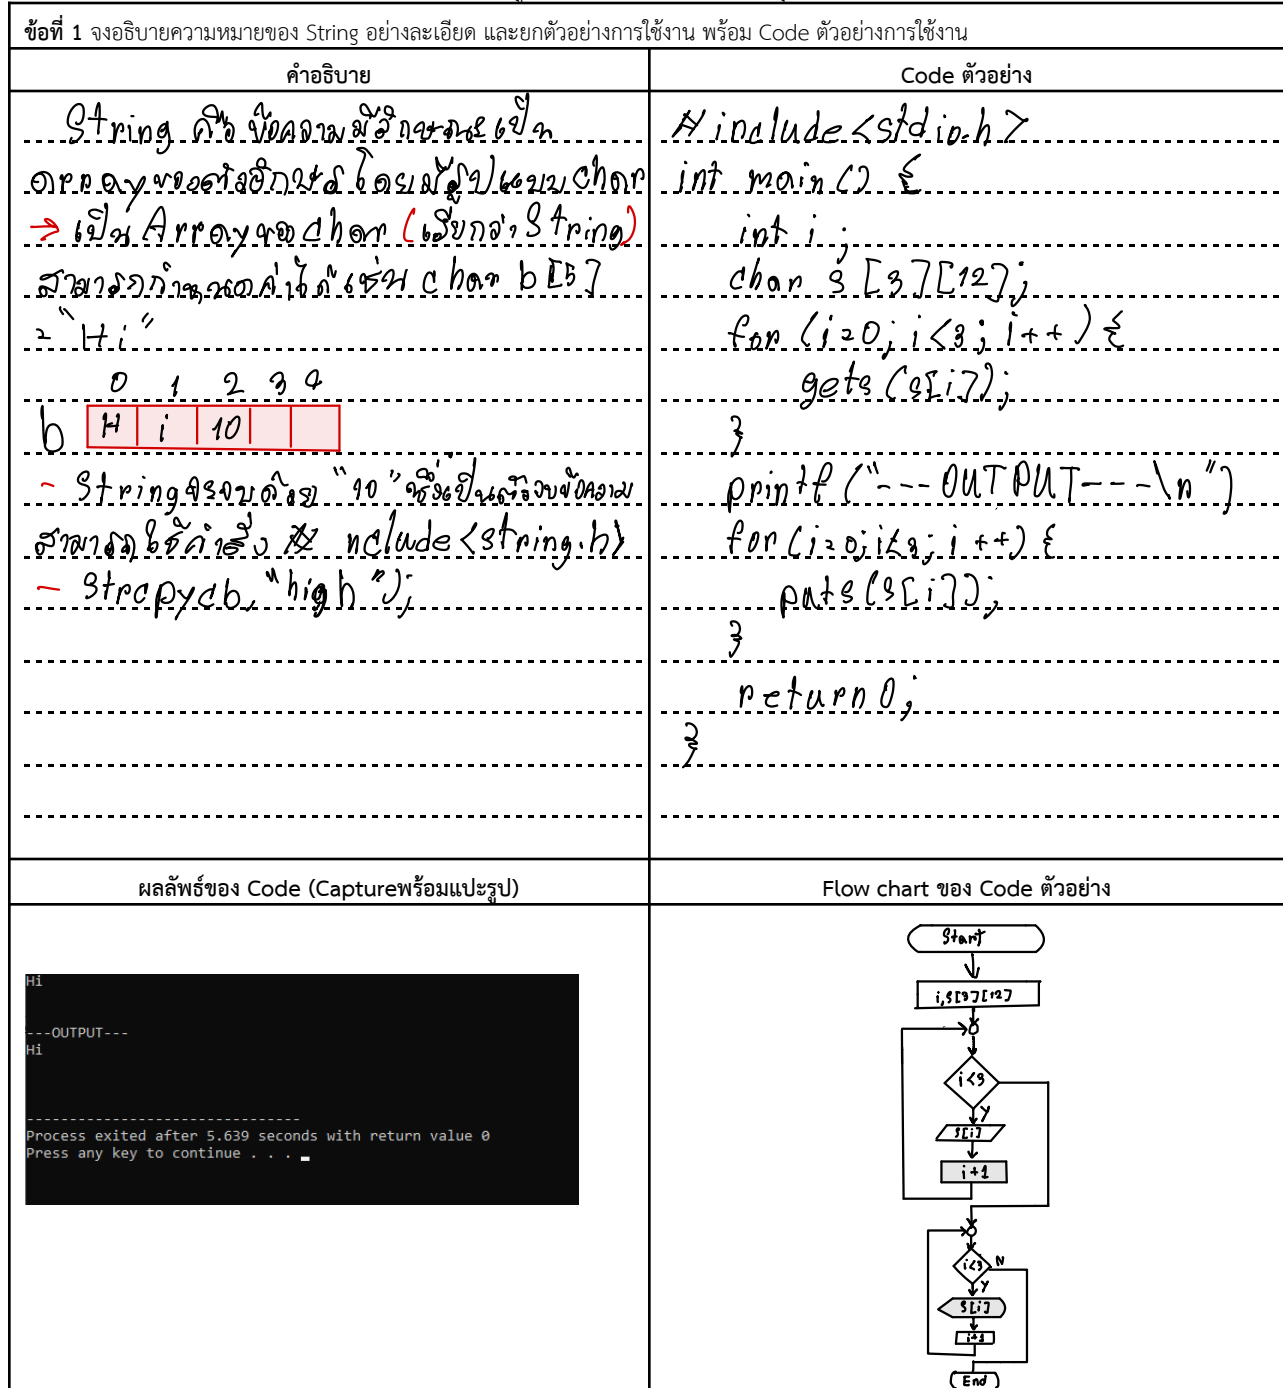 ข้อที่ 1 จงอธิบายความหมายของ String อย่างละเอียด และยกตัวอย่างการใช้งาน พร้อม Code ตัวอย่างการใช้งาน
คำอธิบาย
String คือ ข้อความมีลักษณะเป็น
array ของตัวอักษร โดยมีรูปแบบ char
→ เป็น Array ของ char (เรียกว่า String)
สามารถกำหนดค่าได้ เช่น char b[5]
= "Hi"
0 1 2 3 4
b H i \0
- String จะจบด้วย "\0" ซึ่งเป็นตัวจบข้อความ
สามารถใช้คำสั่ง nclude <string.h>
- Strcpy(b, "high");
Code ตัวอย่าง
# include <stdio.h>
int main() {
int i ;
char s [3][12];
for (i=0; i<3; i++) {
gets (s[i]);
}
printf ("--- OUTPUT---\n")
for(i=0; i<3; i++) {
puts (s[i]);
}
return 0;
}
ผลลัพธ์ของ Code (Captureพร้อมแปะรูป)
Hi
---OUTPUT---
Hi
--------------------------------
Process exited after 5.639 seconds with return value 0
Press any key to continue . . .
Flow chart ของ Code ตัวอย่าง
Start
i,s[3][12]
i<3
Y
s[i]
i+1
i<3 N
Y
s[i]
i+1
End